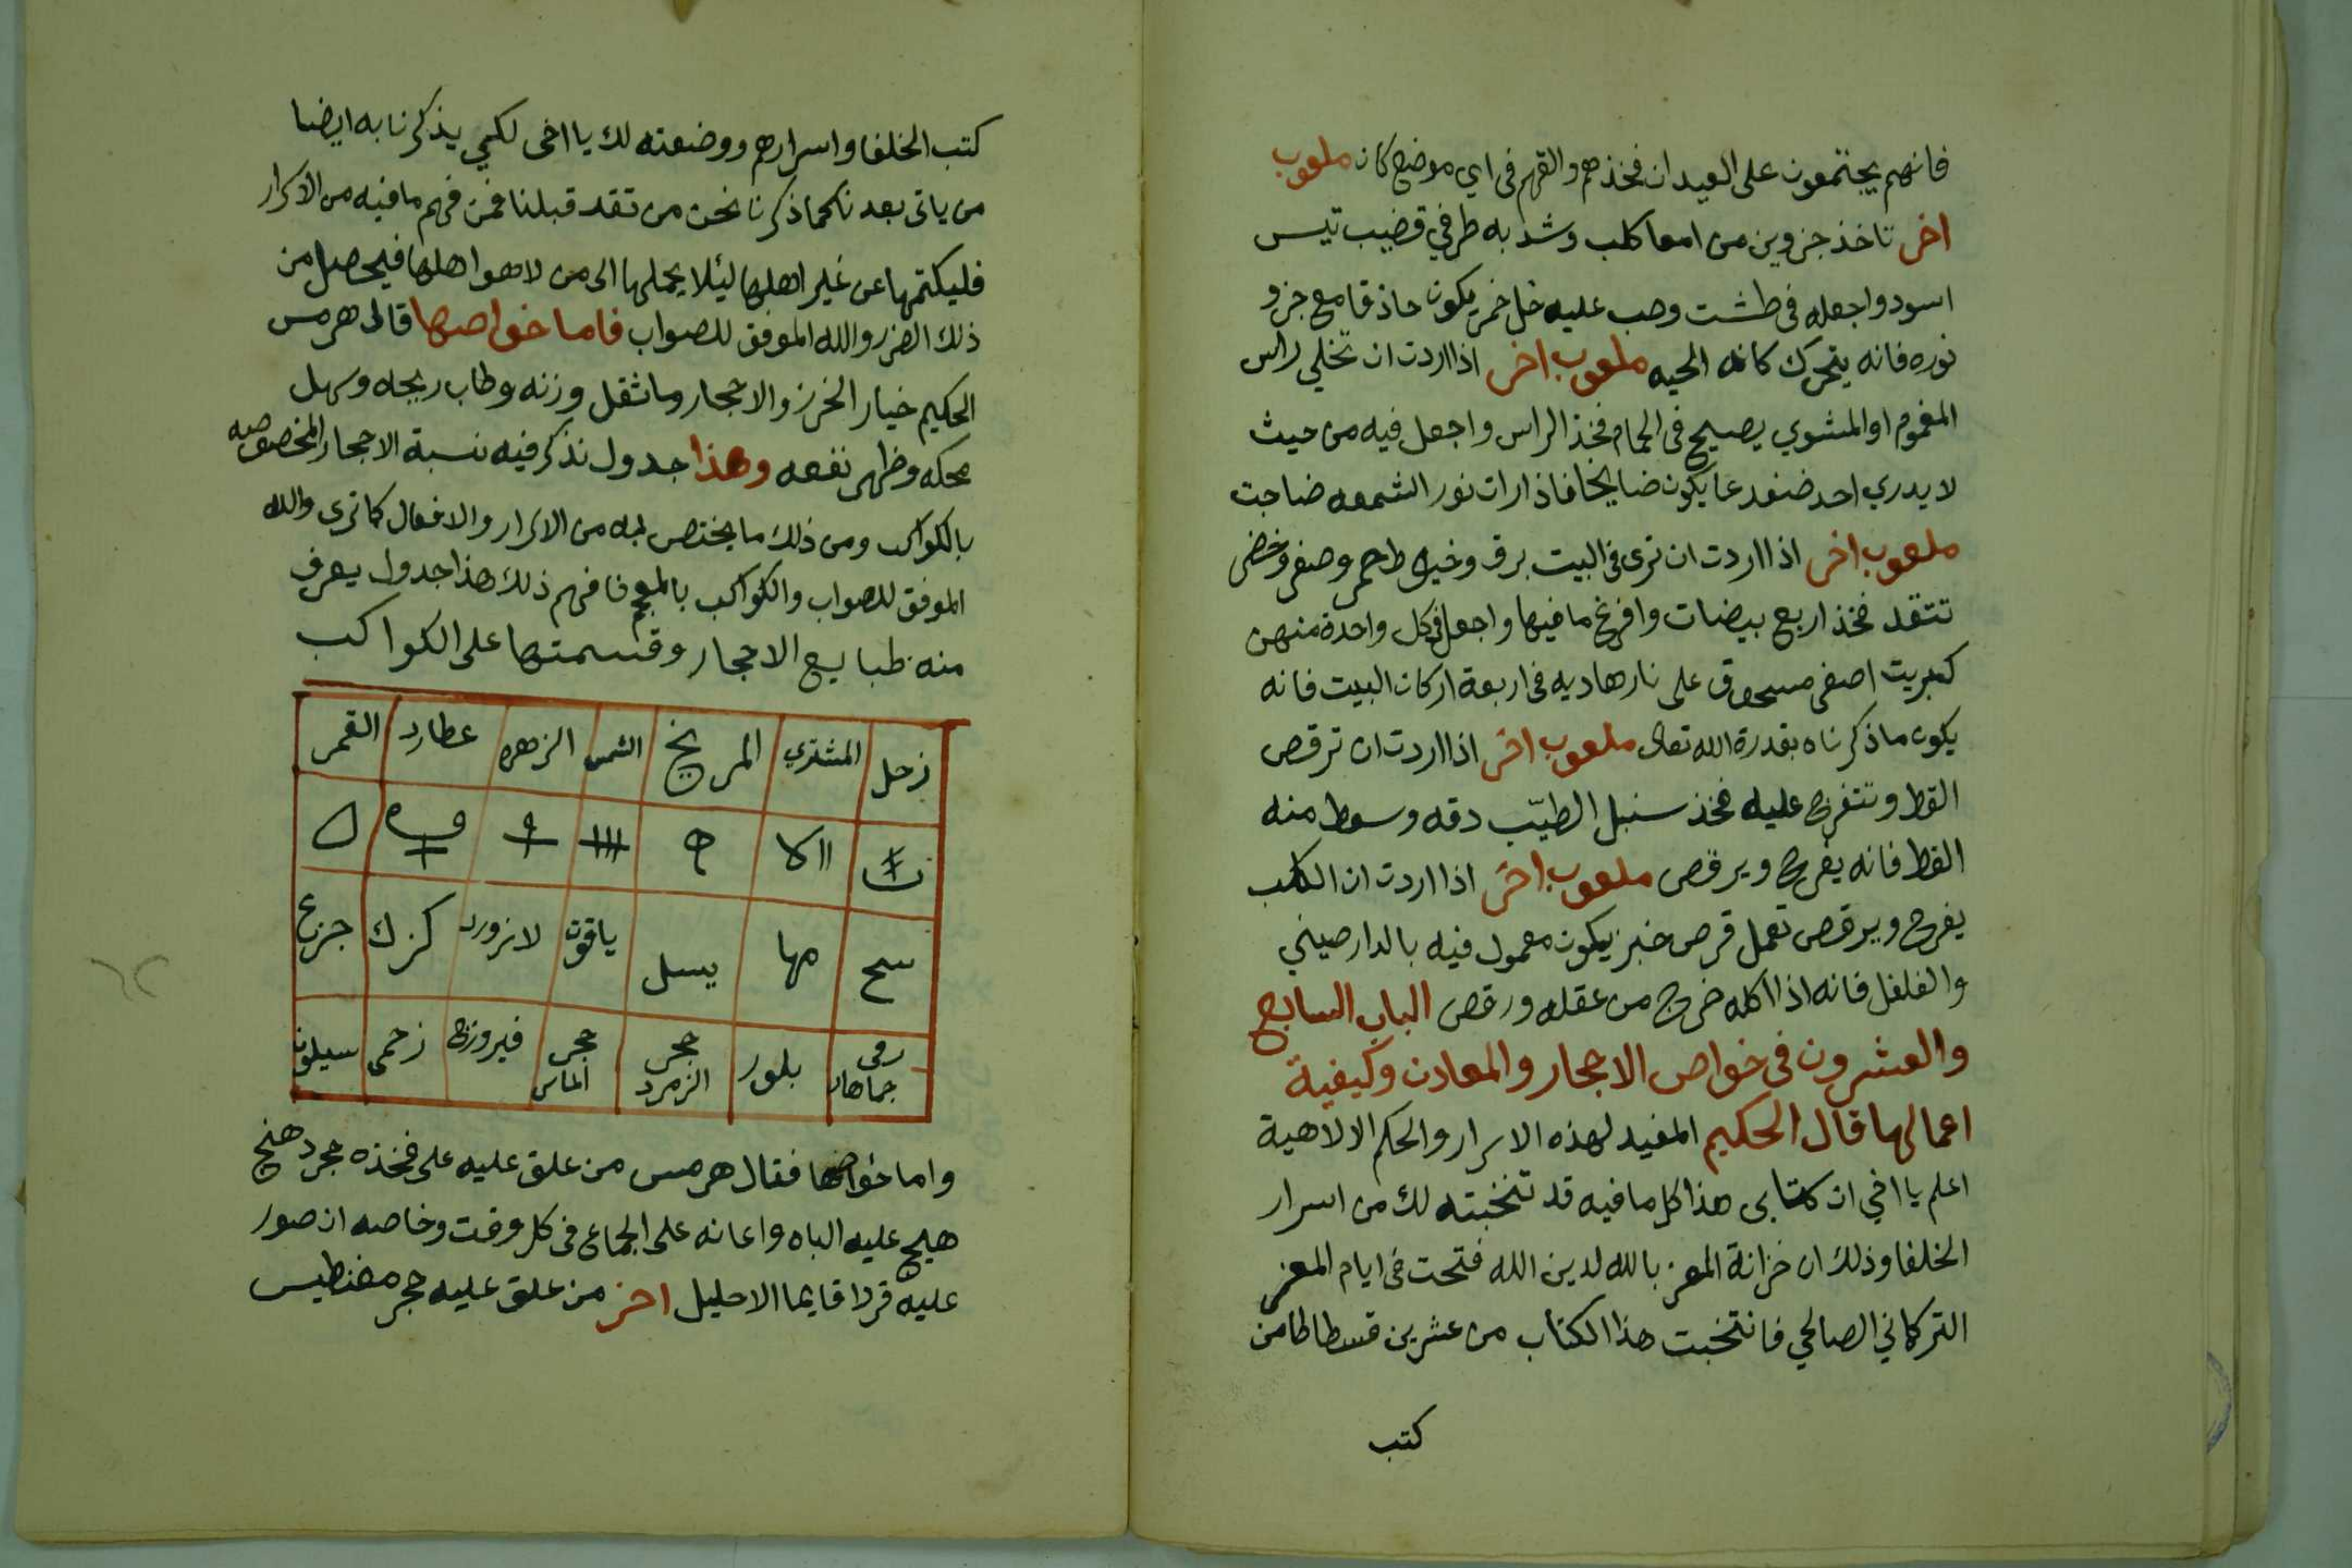 فانهم يجتمعون على العيدان فخذهم والقهم فى اي موضع كان ملعوب
اخر تاخذ جزوين من امعا كلب وشد به طرفي قضيب تيس
اسود واجعله فى طشت وصب عليه خل خمر يكون حاذقا مع جزو
نوره فانه يتحرك كانه الحيه ملعوب اخر اذا اردت ان تخلي راس
المغموم او المشوي يصيح فى الحمام فخذ الراس واجعل فيه من حيث
لا يدري احد ضفدعا يكون صايحا فاذا رات نور الشمعه صاحت
ملعوب اخر اذا اردت ان ترى فى البيت برق وخيوط حمر وصفر وخضر
تتقد فخذ اربع بيضات وافرغ ما فيها واجعل فى كل واحدة منهن
كبريت اصفر مسحوق على نار هاديه فى اربعة اركان البيت فانه
يكون ما ذكرناه بقدرة الله تعالى ملعوب اخر اذا اردت ان ترقص
القط وتتفرج عليه فخذ سنبل الطيّب دقه وسعط منه
القط فانه يفرح ويرقص ملعوب اخر اذا اردت ان الكلب
يفرح ويرقص تعمل قرص خبز يكون معمول فيه بالدارصيني
والفلفل فانه اذا اكله خرج من عقله ورقص الباب السابع
والعشرون فى خواص الاحجار والمعادن وكيفية
اعمالها قال الحكيم المفيد لهذه الاسرار والحكم الالاهية
اعلم يا اخي ان كتابى هذا كل ما فيه قد تنخبته لك من اسرار
الخلفا وذلك ان خزانة المعز بالله لدين الله فتحت فى ايام المعز
التركمانى الصالحي فانتخبت هذا الكتاب من عشرين قسطاطا من
كتب
كتب الخلفا واسرارهم ووضعته لك يا اخى لكي يذكرنا به ايضا
من ياتى بعدنا كما ذكرنا نحن من تقد قبلنا فمن فهم ما فيه من الاسرار
فليكتمها عن غير اهلها ليئلا يحملها الى من لا هو اهلها فيحصل من
ذلك الضرر والله الموفق للصواب فاما خواصها قال هرمس
الحكيم خيار الخرز والاحجار وما ثقل وزنه وطاب ريحه وسهل
محكه وظهر نفعه وهذا جدول نذكر فيه نسبة الاحجار المخصوصه
بالكواكب ومن ذلك ما يختص به من الاسرار والافعال كما ترى والله
الموفق للصواب والكواكب بالمعجم فافهم ذلك هذا جدول يعرف
منه طبايع الاحجار وقسمتها على الكواكب
زحل المشتري المريخ الشمس الزهره عطارد القمر
سبح مها يسل ياقوت لازورد كزك جزع
جماهان بلور حجر الزمرد حجر الماس فيروزج زحمى سيلون
واما خواصها فقال هرمس من علق عليه على فخذه حجر دهنج
هيج عليه الباه واعانه على الجماع فى كل وقت وخاصه ان صور
عليه قردا قايما الاحليل اخر من علق عليه حجر مغنطيس